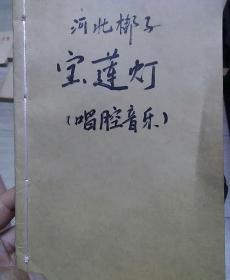 河北梆子
宝莲灯
(唱腔音乐)